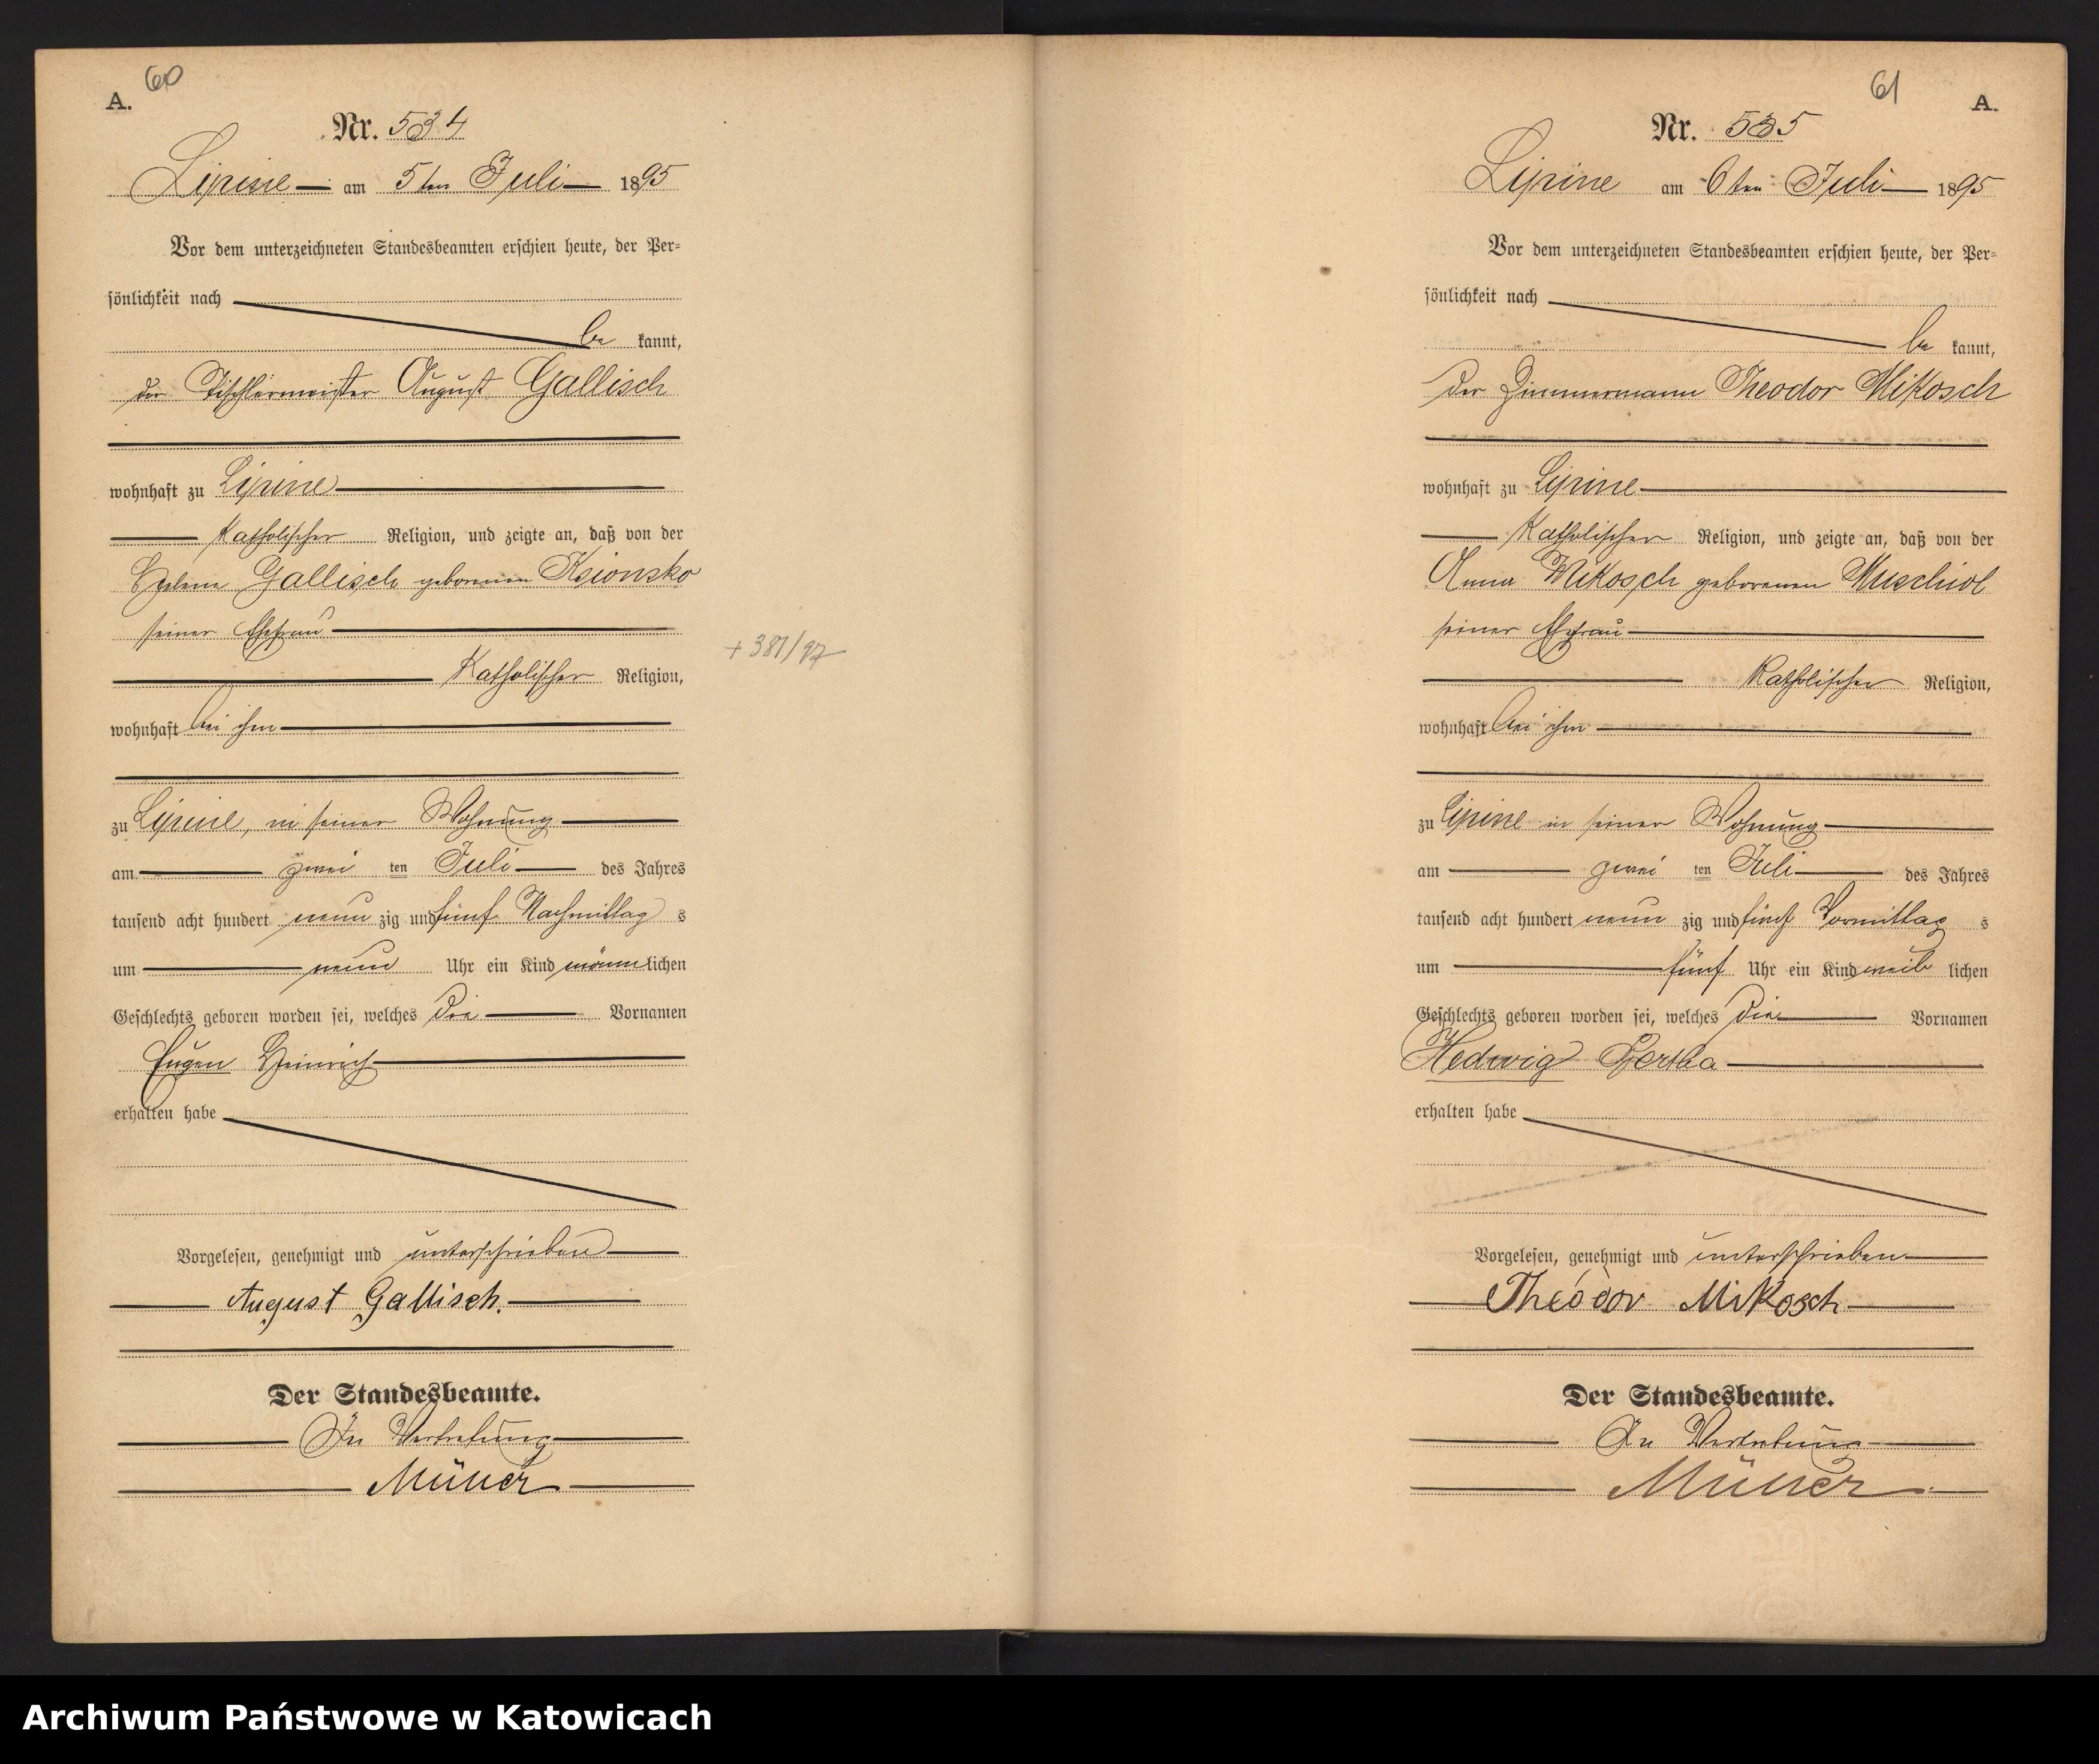 60
A.
Nr. 534
Lipine am 5ten Juli 1895
Vor dem unterzeichneten Standesbeamten erschien heute, der Per-
sönlichkeit nach
be kannt,
der Tischlermeister August Gallisch
wohnhaft zu Lipine
katholischer Religion, und zeigte an, daß von der
Helene Gallisch geborenen Ksionsko
seiner Ehefrau
+ 381/97
katholischer Religion,
wohnhaft bei ihm
zu Lipine, in seiner Wohnung
am zwei ten Juli des Jahres
tausend acht hundert neun zig und fünf Nachmittag s
um neun Uhr ein Kind männlichen
Geschlechts geboren worden sei, welches die Vornamen
Eugen Heinrich
erhalten habe
Vorgelesen, genehmigt und unterschrieben
August Gallisch.
Der Standesbeamte.
In Vertretung
Müller
61
A.
Nr. 535
Lipine am 6ten Juli 1895
Vor dem unterzeichneten Standesbeamten erschien heute, der Per-
sönlichkeit nach
be kannt,
der Zimmermann Theodor Mikosch
wohnhaft zu Lipine
katholischer Religion, und zeigte an, daß von der
Anna Mikosch geborenen Muschiol
seiner Ehefrau
katholischer Religion,
wohnhaft bei ihm
zu Lipine in seiner Wohnung
am zwei ten Juli des Jahres
tausend acht hundert neun zig und fünf Vormittag s
um fünf Uhr ein Kind weib lichen
Geschlechts geboren worden sei, welches die Vornamen
Hedwig Hertha
erhalten habe
Vorgelesen, genehmigt und unterschrieben
Theodor Mikosch
Der Standesbeamte.
In Vertretung
Müller
Archiwum Państwowe w Katowicach